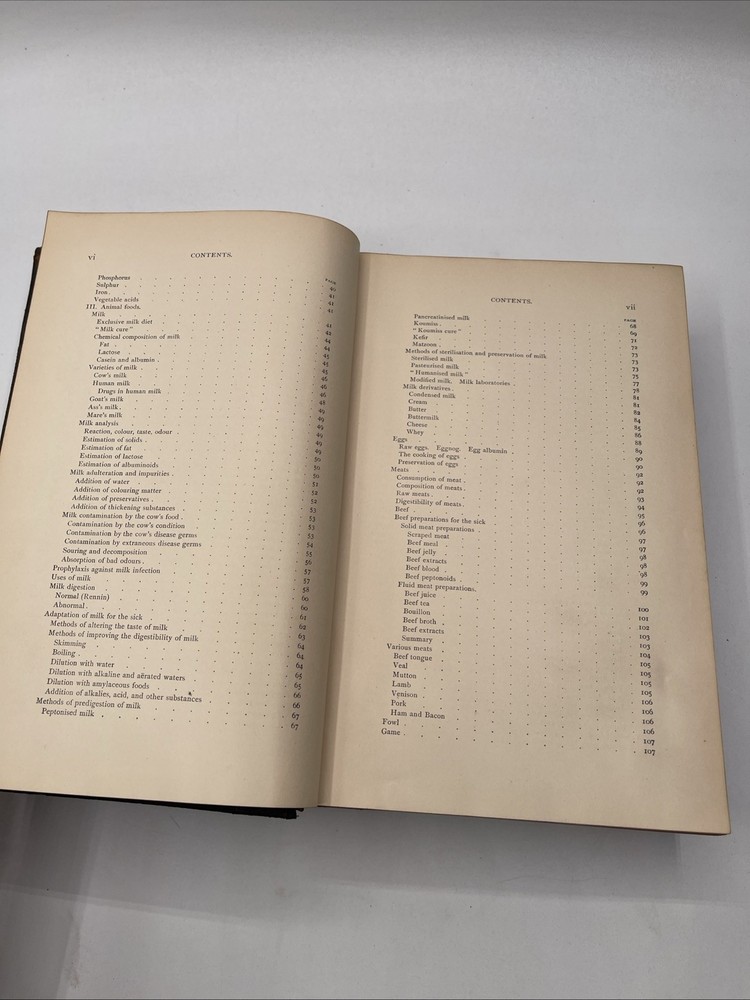 vi
CONTENTS.
PAGE
Phosphorus 40
Sulphur 41
Iron 41
Vegetable acids 41
III. Animal foods.
Milk 41
Exclusive milk diet 42
"Milk cure" 44
Chemical composition of milk 44
Fat 44
Lactose 45
Casein and albumin 45
Varieties of milk 46
Cow's milk 46
Human milk 46
Drugs in human milk 48
Goat's milk 49
Ass's milk 49
Mare's milk 49
Milk analysis 49
Reaction, colour, taste, odour 49
Estimation of solids 49
Estimation of fat 50
Estimation of lactose 50
Estimation of albuminoids 50
Milk adulteration and impurities 51
Addition of water 52
Addition of colouring matter 52
Addition of preservatives 53
Addition of thickening substances 53
Milk contamination by the cow's food 53
Contamination by the cow's condition 53
Contamination by the cow's disease germs 54
Contamination by extraneous disease germs 55
Souring and decomposition 56
Absorption of bad odours 57
Prophylaxis against milk infection 57
Uses of milk 58
Milk digestion 60
Normal (Rennin) 60
Abnormal 61
Adaptation of milk for the sick 62
Methods of altering the taste of milk 63
Methods of improving the digestibility of milk 64
Skimming 64
Boiling 64
Dilution with water 65
Dilution with alkaline and aërated waters 65
Dilution with amylaceous foods 66
Addition of alkalies, acid, and other substances 66
Methods of predigestion of milk 67
Peptonised milk 67
CONTENTS.
vii
PAGE
Pancreatinised milk 68
Koumiss 69
"Koumiss cure" 71
Kefir 72
Matzoon 73
Methods of sterilisation and preservation of milk 73
Sterilised milk 73
Pasteurised milk 75
"Humanised milk" 77
Modified milk. Milk laboratories 78
Milk derivatives 81
Condensed milk 81
Cream 82
Butter 84
Buttermilk 85
Cheese 86
Whey 88
Eggs 89
Raw eggs. Eggnog. Egg albumin 90
The cooking of eggs 90
Preservation of eggs 92
Meats 92
Consumption of meat 92
Composition of meats 93
Raw meats 94
Digestibility of meats 95
Beef 96
Beef preparations for the sick 96
Solid meat preparations 97
Scraped meat 97
Beef meal 98
Beef jelly 98
Beef extracts 98
Beef blood 99
Beef peptonoids 99
Fluid meat preparations.
Beef juice 100
Beef tea 101
Bouillon 102
Beef broth 103
Beef extracts 103
Summary 104
Various meats 105
Beef tongue 105
Veal 105
Mutton 105
Lamb 106
Venison 106
Pork 106
Ham and Bacon 106
Fowl 107
Game 107